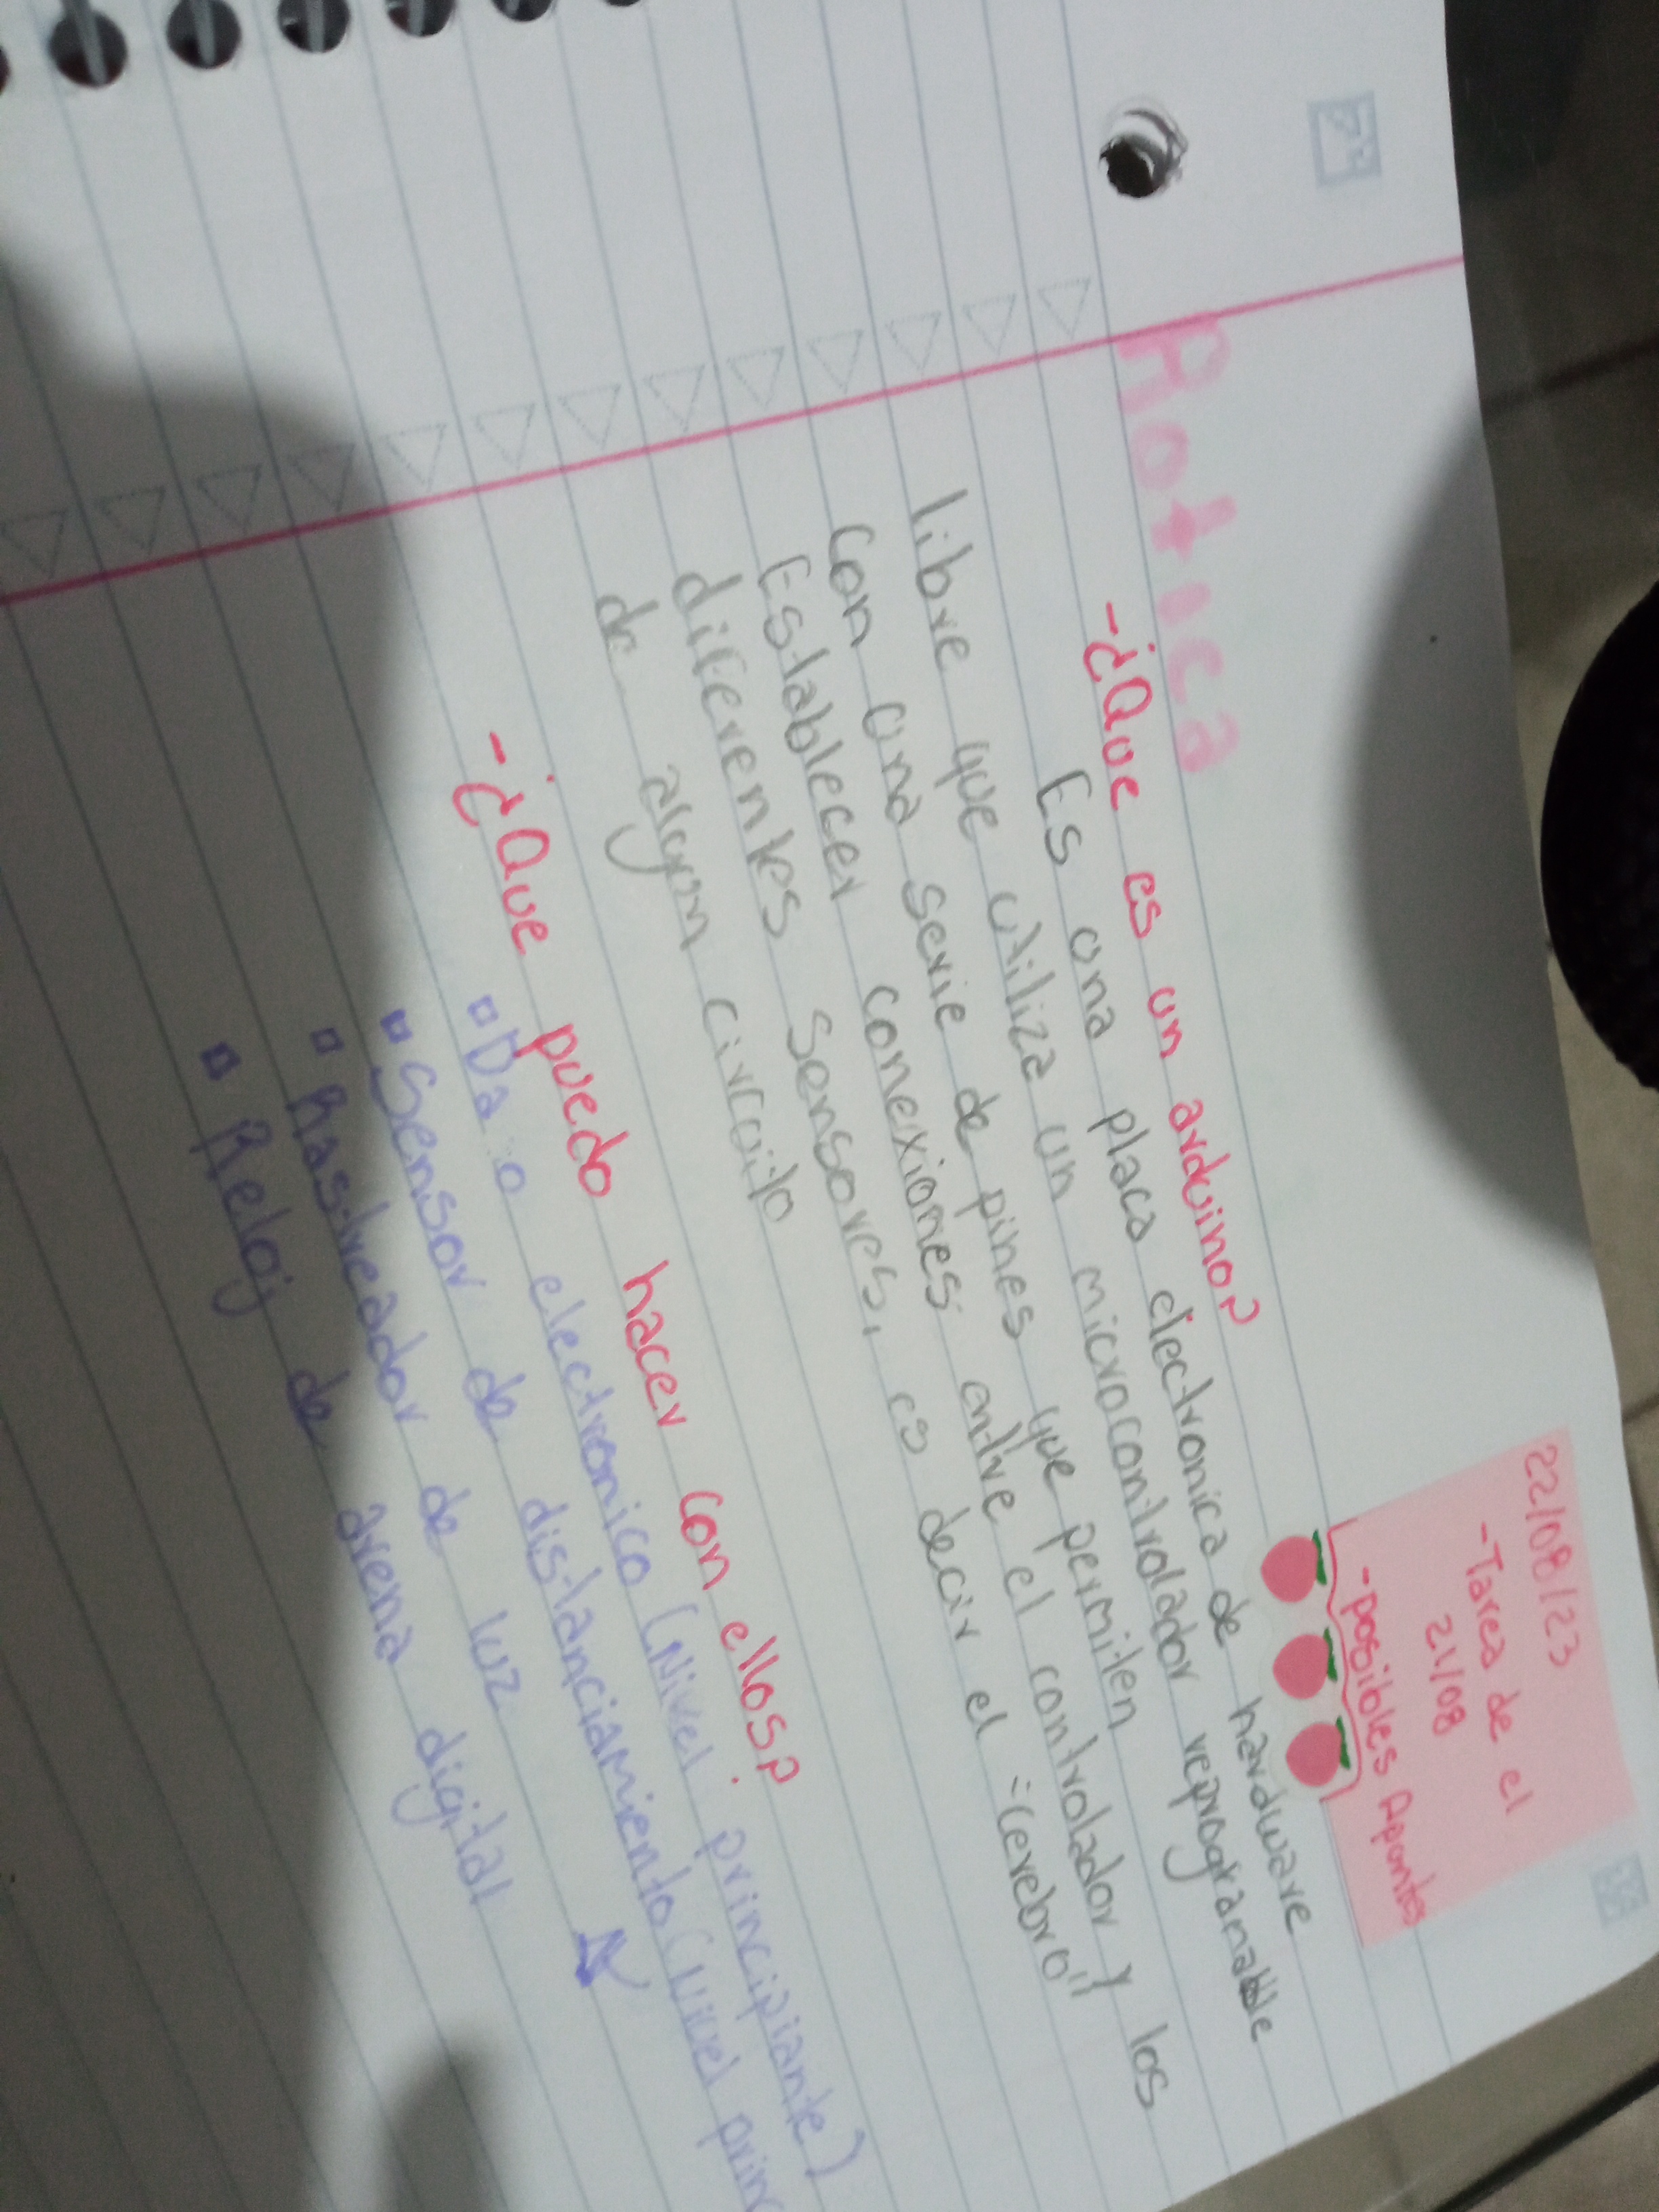 22/08/23
-Tarea de el
21/08
-posibles Apontes
Rotica
-¿Que es un arduino?
Es una placa electronica de hardware
libre que utiliza un microcontrolador reprogramable
con una serie de pines que permiten
Establecer conexiones entre el controlador y los
diferentes sensores, es decir el "cerebro"
de algun circuito
-¿Que puedo hacer con ellos?
Da o electronico (Nivel principiante)
Sensor de distanciamiento (nivel prin
Rastreador de luz
Reloj de arena digital